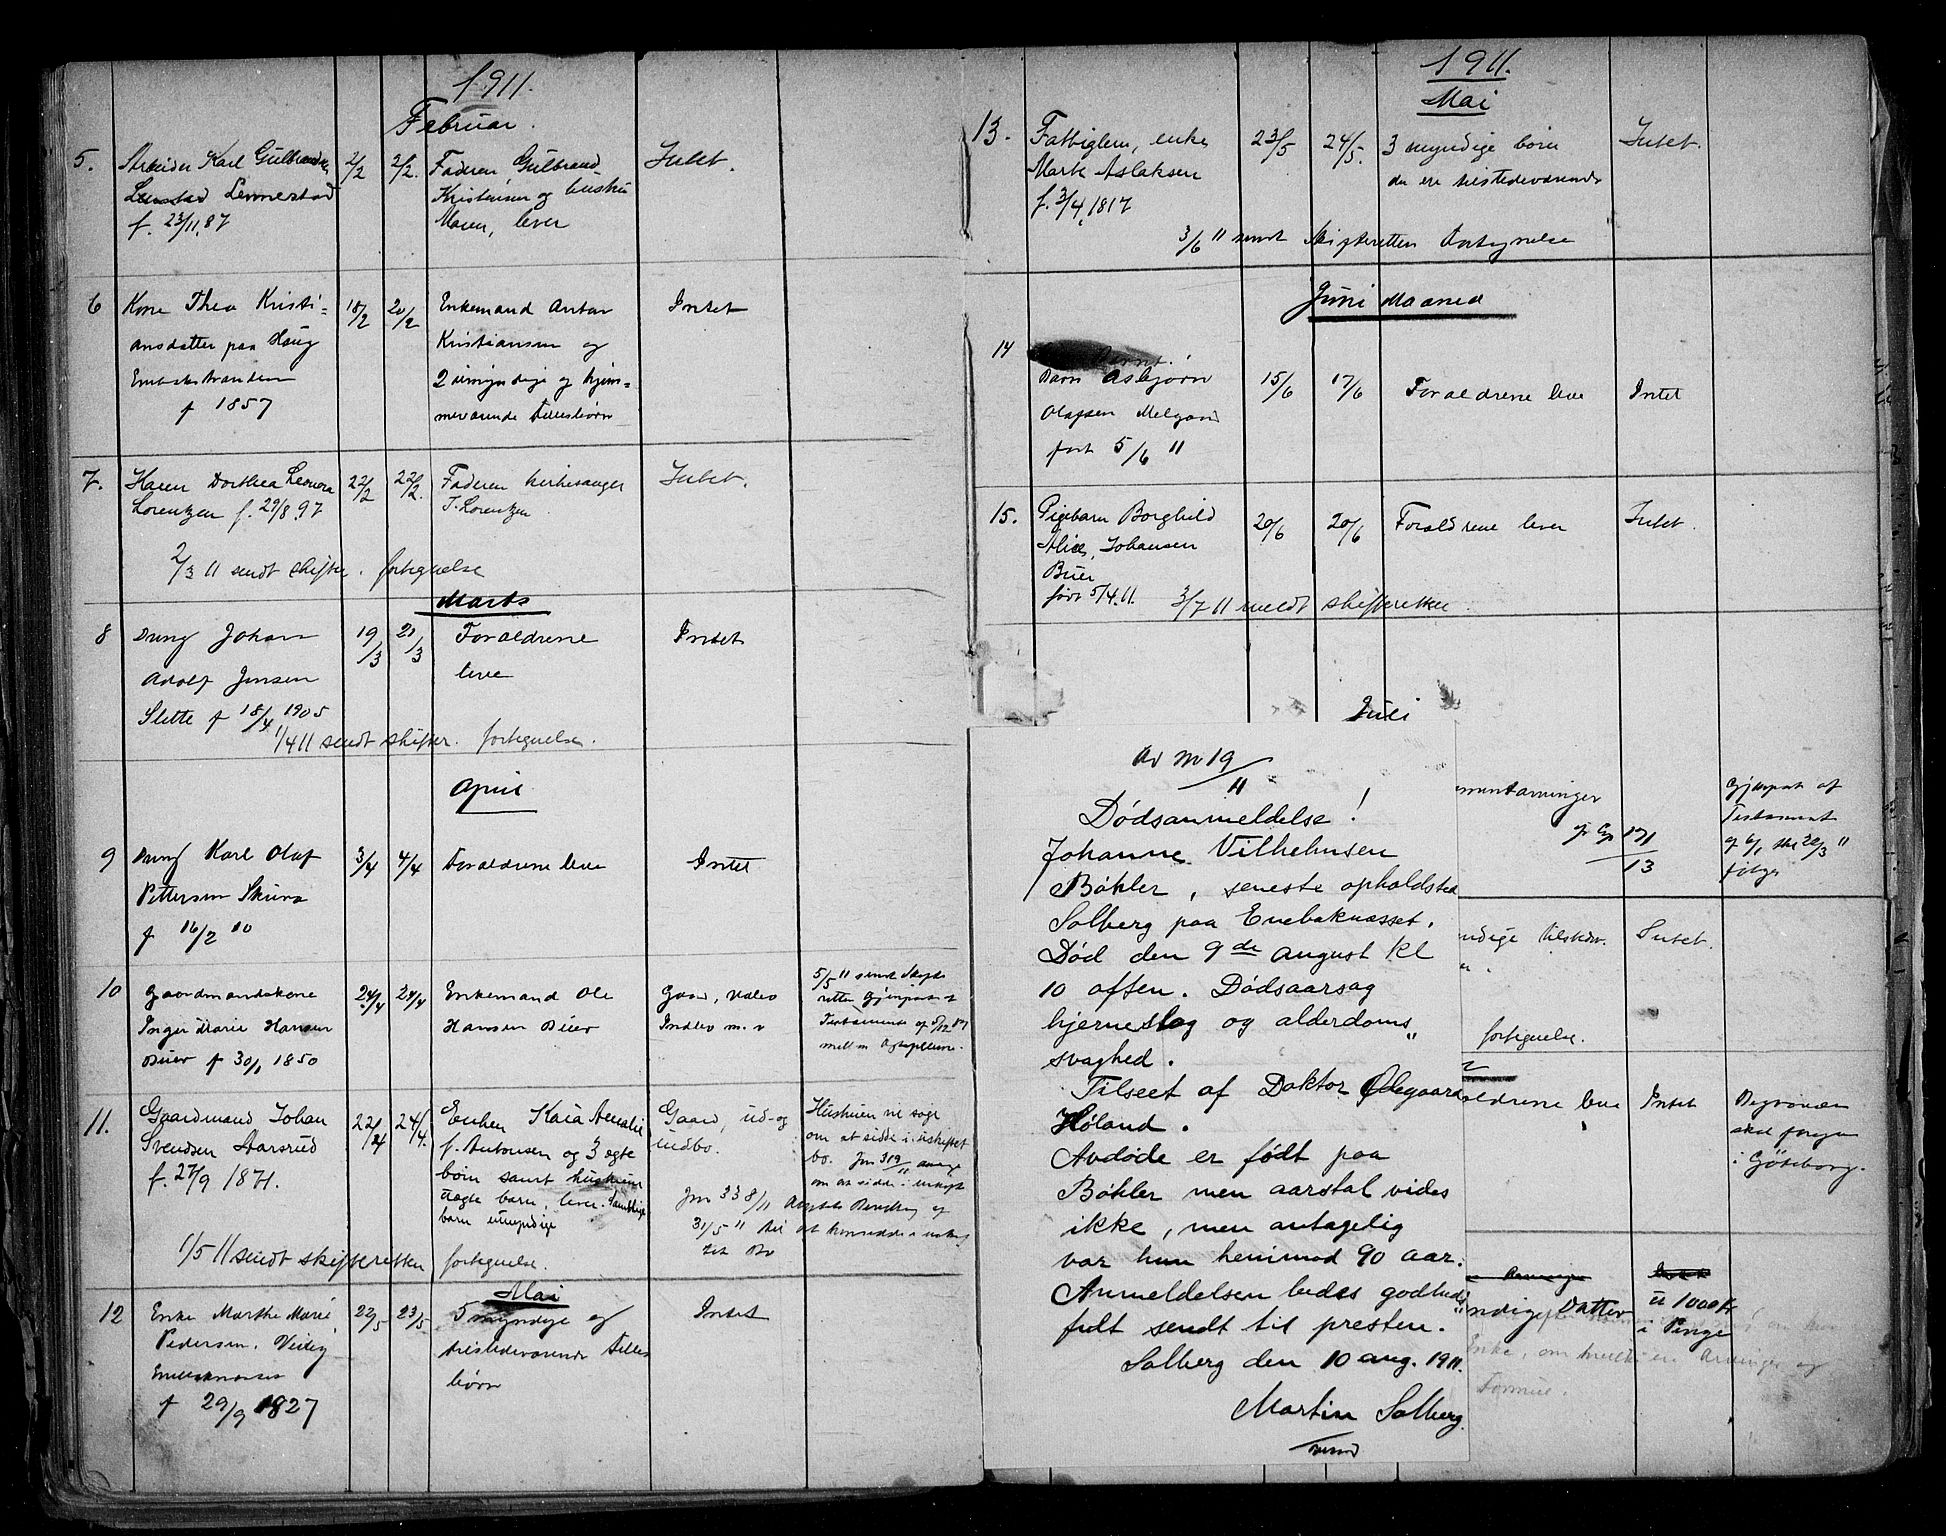 1911.
Februar.
5.
Arbeider Karl Gulbrandsen
Lennestad
f. 23/11.87
2/2
2/2.
Faderen Gulbrand
Kristiansen og hustru
Maren, lever
Intet.
6
Kone Thea Kristi=
ansdatter paa Haug
f 1857
18/2
20/2
Enkemand Anton
Kristiansen og
2 umyndige og hjem=
meværende Fellesbørn
Intet
7.
Karen Dorthea Leonora
Lorentzen f. 29/8.97
22/2
22/2.
Faderen kirkesanger
T. Lorentzen
Intet.
2/3 11 sendt skifter. fortegnelse
Marts
8
Dreng Johan
Adolf Jensen
Slette f 18/4 1905
19/3
21/3
Forældrene
leve
Intet
1/4 11 sendt skifter. fortegnelse.
April
9
Dreng Karl Olaf
Pettersen Skurva
f 16/2 10
3/4
4/4
Forældrene leve
Intet
10
Gaardmandskone
Inger Marie Hansen
Buer f 30/1 1850
24/4
24/4
Enkemand Ole
Hansen Buer
Gaard, Udbo
Indbo m. v
5/5 11 sendt Skifte
retten Gjenpart af
Testamente af
mellem Ægtefellerne.
11.
Gaardmand Johan
Svendsen Aarsrud
f. 27/9 1871.
22/4
24/4.
Enken Kaia Amalie
f. Antonsen og 3 ægte
børn samt hustruens
uægte barn, lever. Samtlige
barn umyndige
Gaard, ud- og
indbo.
Hustruen vil søge
om at sidde i uskiftet
bo. Jnr 319/11 ansøge
om at sidde i uskifte
Jnr 338/11 Amtets Bevilling af
31/5 11 til at hensidde i uskif
tet Bo
1/5 11 sendt skifteretten fortegnelse.
Mai
12
Enke Marthe Marie
Pedersen, Veideg
Enebaknesset
f 29/9 1827
22/5
23/5
5 myndige og
tilstedeværende Felles
børn
Intet
1911.
Mai
13.
Fattiglem, enke
Marte Aslaksen
f. 3/4.1817
23/5
24/5.
3 myndige børn
der ere tilstedeværende
Intet.
3/6 11 sendt Skifteretten Fortegnelse
Juni Maaned
14
Barn Asbjørn
Olafsen Melgaard
født 5/6 11
15/6
17/6
Forældrene leve
Intet
15.
Pigebarn Borghild
Alice, Johansen
Buer
født 5/4.11.
20/6
20/6
Forældrene lever
Intet.
3/7 11 meldt skifteretten
Juli
Av nr 19/11
Dødsanmeldelse!
Johanne Vilhelmsen
Bøhler, seneste opholdsted
Solberg paa Enebaknæsset.
Død den 9de august kl
10 aften. Dødsaarsag
hjerneslag og alderdoms„
svaghed.
Tilseet af Doktor Ødegaard
Høland.
Avdøde er født paa
Bøhler men aarstal vides
ikke, men antagelig
var hun henimod 90 aar.
Anmeldelsen bedes godhed„
fult sendt til presten.
Solberg den 10 aug. 1911.
Martin Solberg
vend
Gjenpart af
Testament
følger
ndige tilstedev.
Intet.
fortegnelse.
ældrene leve
Intet
Begravelsen
skal foregaa
i Göteborg.
ndige Datter
Intet
ca 1000 Kr
i Penge
Enke, om hvilke er Arvinger og
Formue.